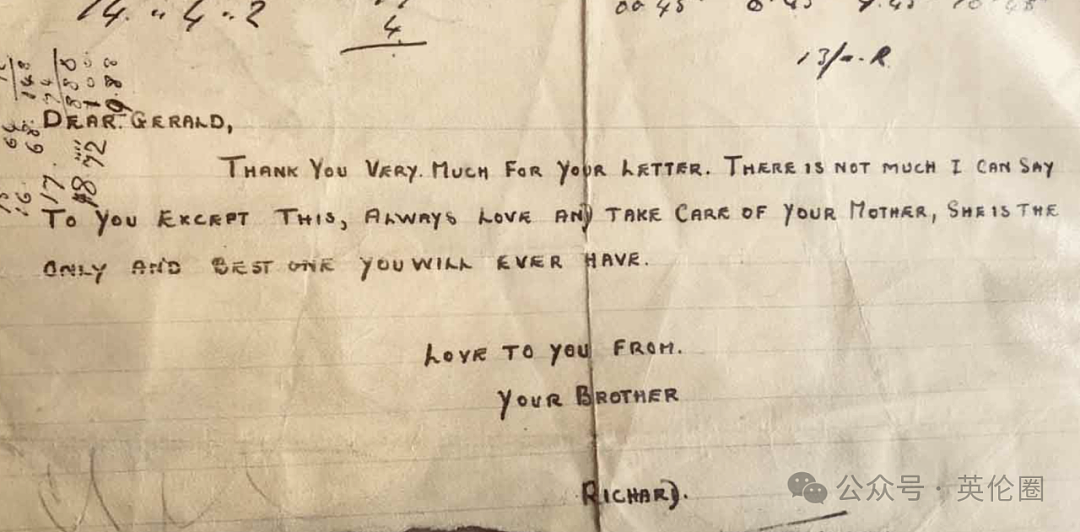 14. " 4 " 2
4
13/-. R
DEAR. GERALD,
THANK YOU VERY. MUCH FOR YOUR LETTER. THERE IS NOT MUCH I CAN SAY
TO YOU EXCEPT THIS, ALWAYS LOVE AND TAKE CARE OF YOUR MOTHER, SHE IS THE
ONLY AND BEST ONE YOU WILL EVER HAVE.
LOVE TO YOU FROM.
YOUR BROTHER
RICHARD.
公众号 · 英伦圈